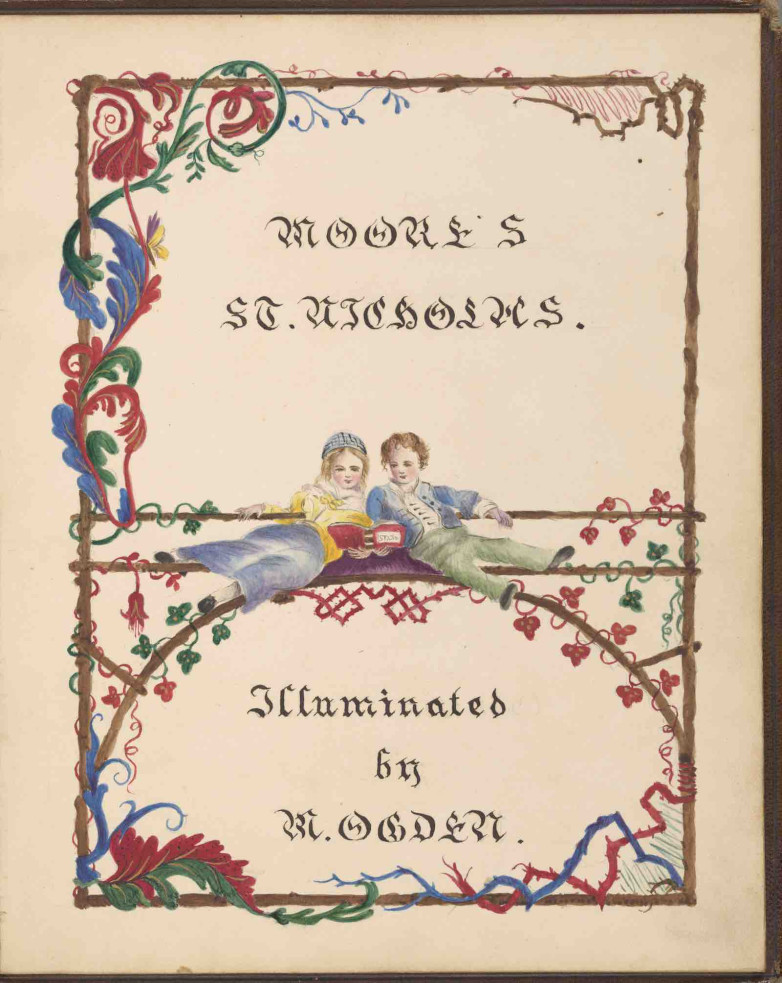 MOORE'S
ST. NICHOLAS.
Illuminated
by
M. OGDEN.